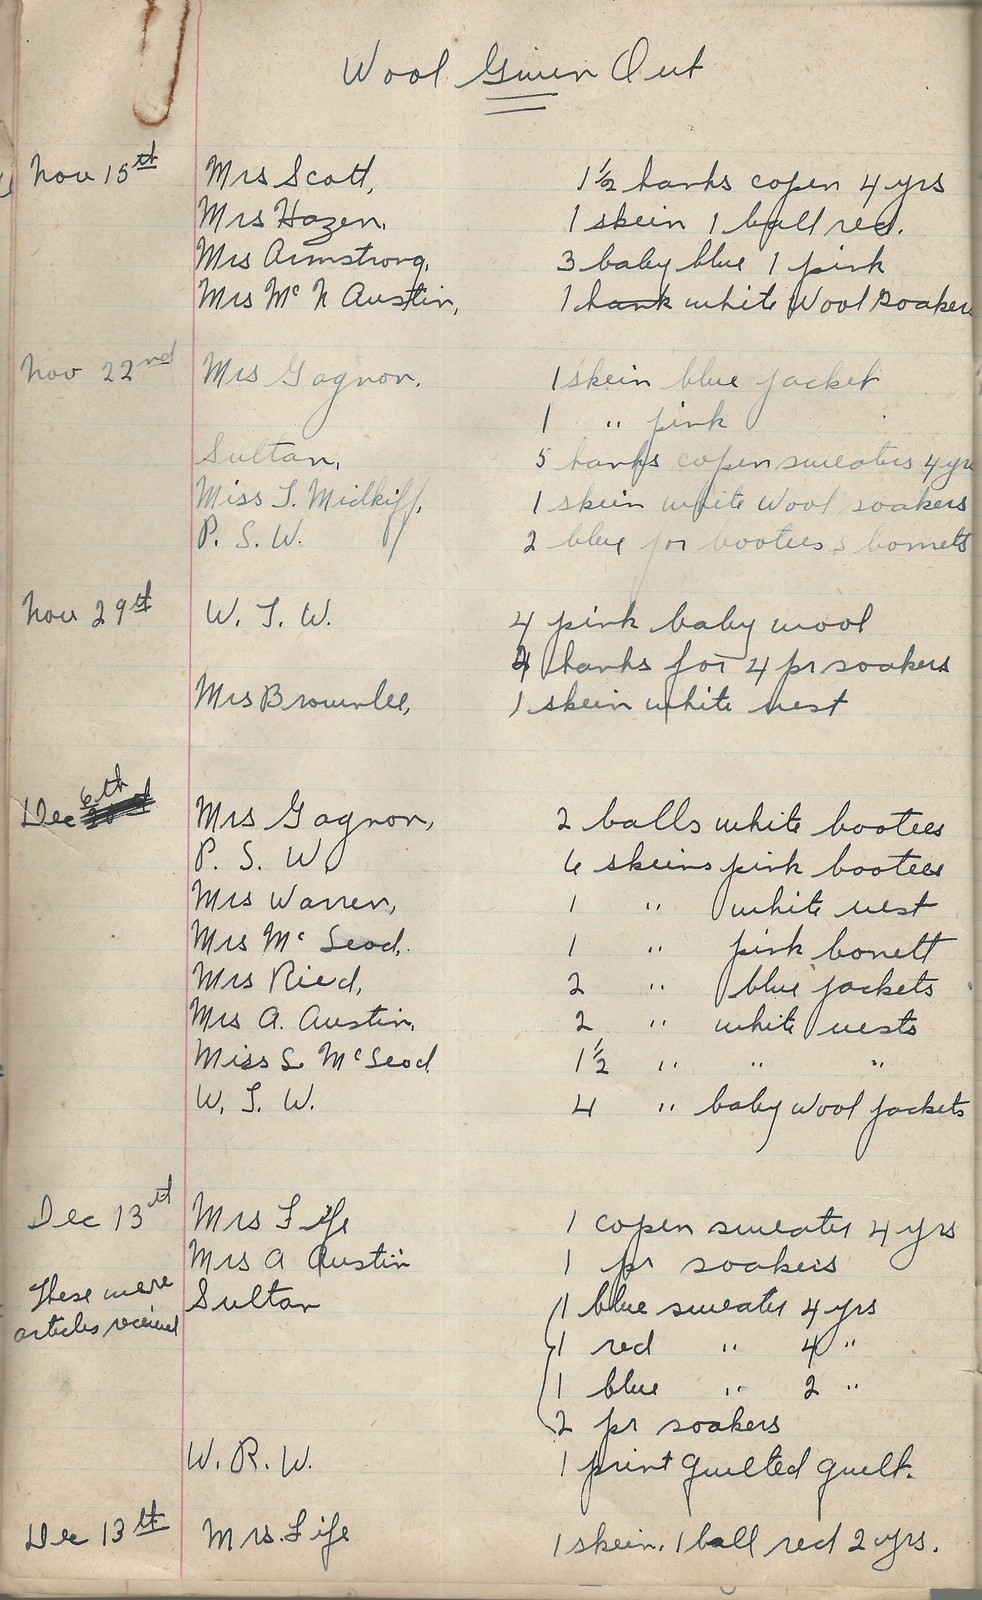 Wool Given Out
Nov 15th Mrs Scott, 1½ hanks copen 4 yrs
Mrs Hazen, 1 skein 1 ball red.
Mrs Armstrong, 3 baby blue 1 pink
Mrs Mc N Austin, 1 hank white Wool soakers
Nov 22nd Mrs Gagnon, 1 skein blue jacket
1 " pink
Sultan, 5 hanks copen sweaters 4 yrs
Miss T. Midkiff, 1 skein white Wool soakers
P. S. W. 2 blue for bootees & bonnets
Nov 29th W. T. W. 4 pink baby wool
4 hanks for 4 pr soakers
Mrs Brownlee, 1 skein white vest
Dec 6th Mrs Gagnon, 2 balls white bootees
P. S. W. 6 skeins pink bootees
Mrs Warren, 1 " white vest
Mrs Mc Leod. 1 " pink bonett
Mrs Ried, 2 " blue jackets
Mrs A. Austin, 2 " white vests
Miss S. McLeod 1½ " " "
W. T. W. 4 " baby wool jackets
Dec 13th Mrs Fife 1 copen sweater 4 yrs
Mrs A Austin 1 pr soakers
These were Sultan 1 blue sweater 4 yrs
articles received 1 red " 4 "
1 blue " 2 "
2 pr soakers
W. R. W. 1 print quilted quilt.
Dec 13th Mrs. Fife 1 skein. 1 ball red 2 yrs.